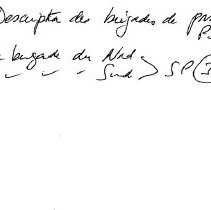 Description des brigades de pr
P
brigade du Nord
" " " Sud } SP (